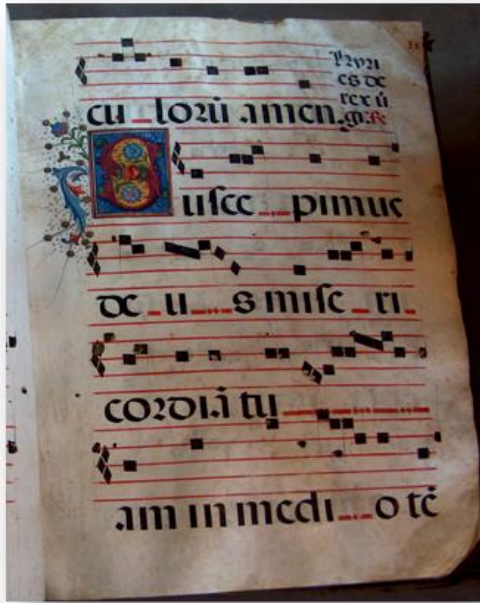 cu lorū amen.
Suscepimus
de us miseri
cordiā tu
am in medio tē